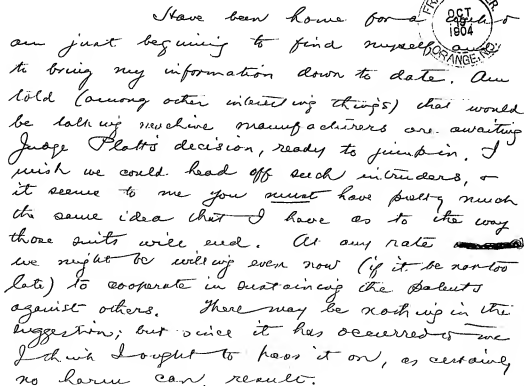 OCT
19
1904
ORANGE, N.J.
Have been home for a &
am just beginning to find myself and
to bring my information down to date. Am
told (among other interesting things) that would
be talking machine manufacturers are awaiting
Judge Platt's decision, ready to jump in. I
wish we could head off such intruders, &
it seems to me you must have pretty much
the same idea that I have as to the way
those suits will end. At any rate
we might be willing even now (if it be not too
late) to cooperate in sustaining the patents
against others. There may be nothing in the
suggestion; but since it has occurred to me
I think I ought to pass it on, as certainly
no harm can result.